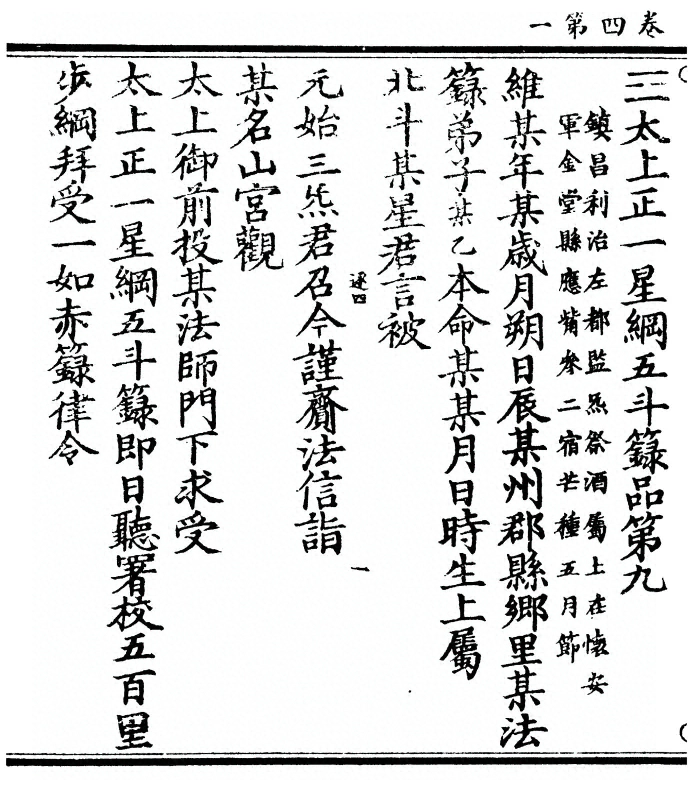 卷四第一
三太上正一星綱五斗籙品第九
鎮昌利治左都監炁祭酒屬上在懷安
軍金堂縣應觜參二宿芒種五月節
維某年某歲月朔日辰某州郡縣鄉里某法
籙弟子某乙本命某某月日時生上屬
北斗某星君言被
逐四
元始三炁君召今謹齎法信詣
一
某名山宮觀
太上御前投某法師門下求受
太上正一星綱五斗籙即日聽署校五百里
步綱拜受一如赤籙律令